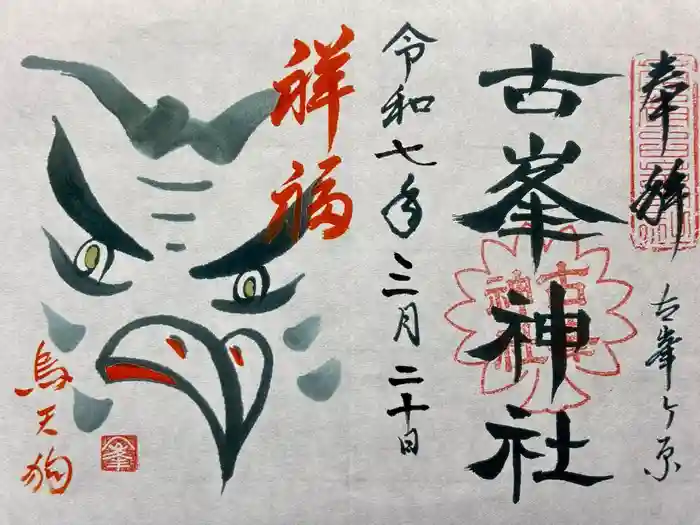 奉拝
古峯ヶ原
古峯神社
令和七年三月二十日
祥福
烏天狗